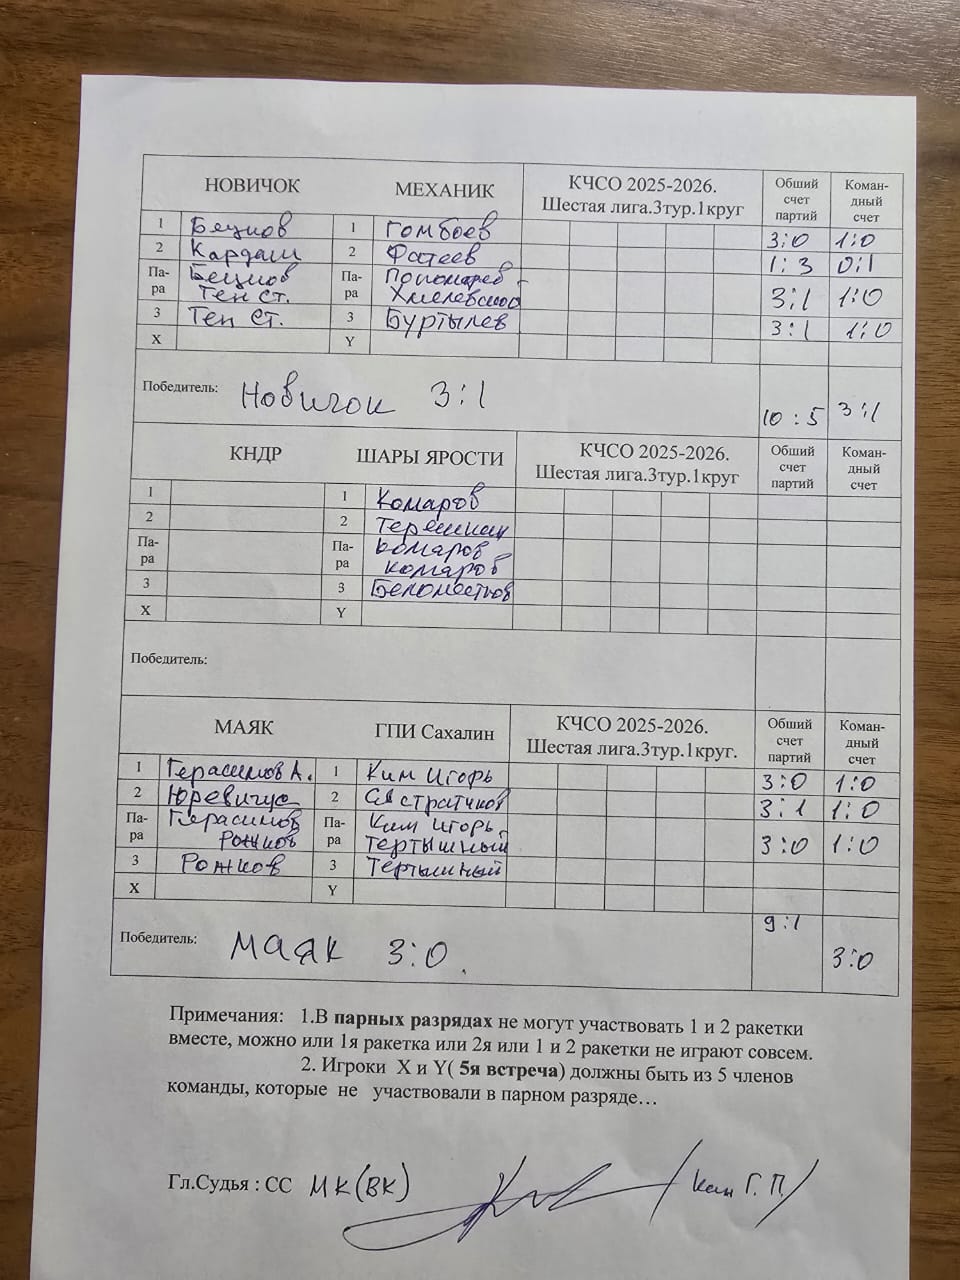 НОВИЧОК МЕХАНИК КЧСО 2025-2026. Шестая лига.3тур.1круг Общий счет партий Коман-дный счет
1 Бецнов 1 Гомбоев 3:0 1:0
2 Кардаш 2 Фатеев 1:3 0:1
Па- Бецнов Па- Пономарев -
ра Тен Ст. ра Хмелевской 3:1 1:0
3 Тен Ст. 3 Буртылев 3:1 1:0
X Y
Победитель: Новичок 3:1 10:5 3:1
КНДР ШАРЫ ЯРОСТИ КЧСО 2025-2026. Шестая лига.3тур.1круг Общий счет партий Коман-дный счет
1 1 Комаров
2 2 Терешкин
Па- Па- Комаров
ра ра Комаров
3 3 Беломестнов
X Y
Победитель:
МАЯК ГПИ Сахалин КЧСО 2025-2026. Шестая лига.3тур.1круг. Общий счет партий Коман-дный счет
1 Герасимов А. 1 Ким Игорь 3:0 1:0
2 Юревичус 2 Евстратчков 3:1 1:0
Па- Герасимов Па- Ким Игорь -
ра Рожков ра Тертышный 3:0 1:0
3 Рожков 3 Тертышный
X Y
Победитель: Маяк 3:0. 9:1 3:0
Примечания: 1.В парных разрядах не могут участвовать 1 и 2 ракетки
вместе, можно или 1я ракетка или 2я или 1 и 2 ракетки не играют совсем.
2. Игроки X и Y( 5я встреча) должны быть из 5 членов
команды, которые не участвовали в парном разряде…
Гл.Судья : СС МК(ВК) /Кан Г.П./